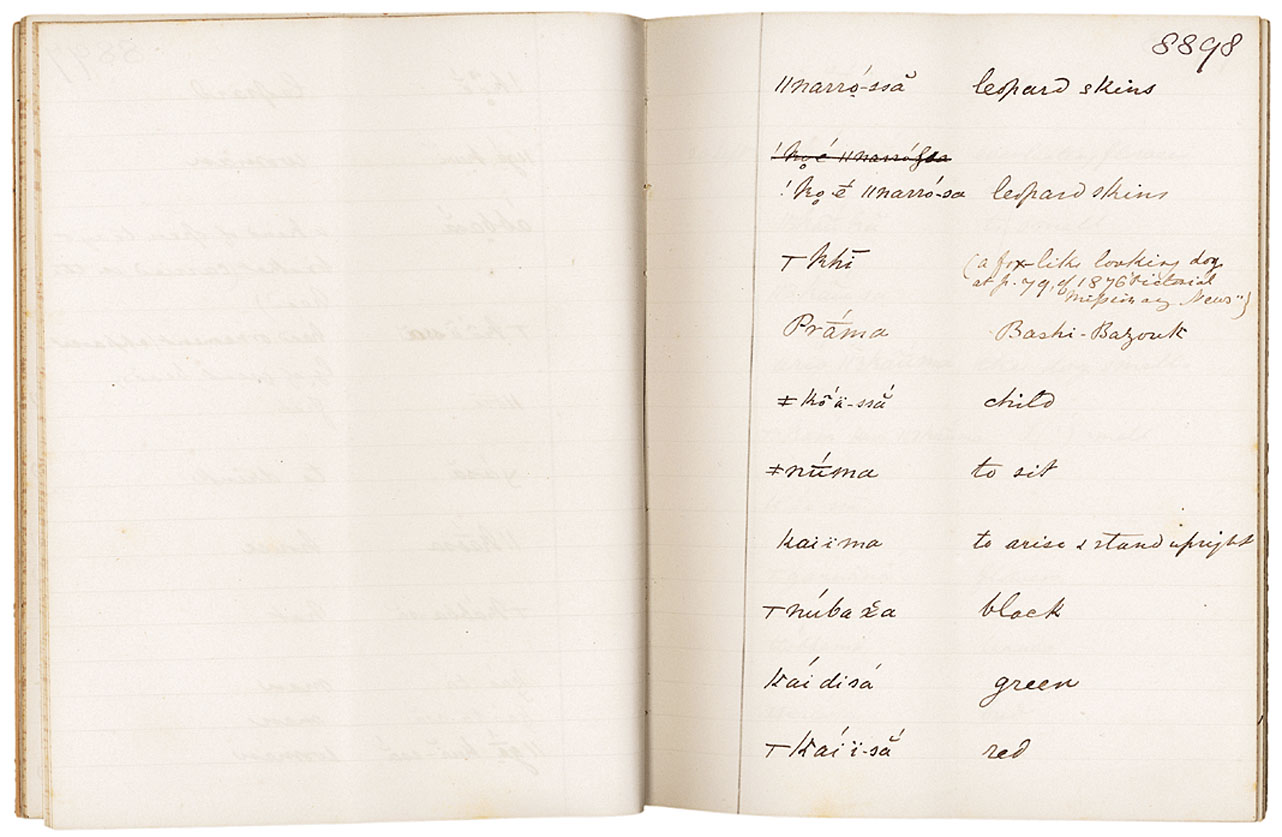 8898
ǁnarrọ́-ssă leopard skins
!kọ-é ǁnarró-sa leopard skins
⊤khī (a fox-like looking dog
at p. 79, of 1876 Pictorial
Missionary News")
Prā́ma Bashi-Bazouk
ǂkŏ́ä-ssā́ child
ǂnū́ma to sit
kaiima to arise & stand upright
⊤núbaža black
káidisá green
⊤káïï-sā́ red